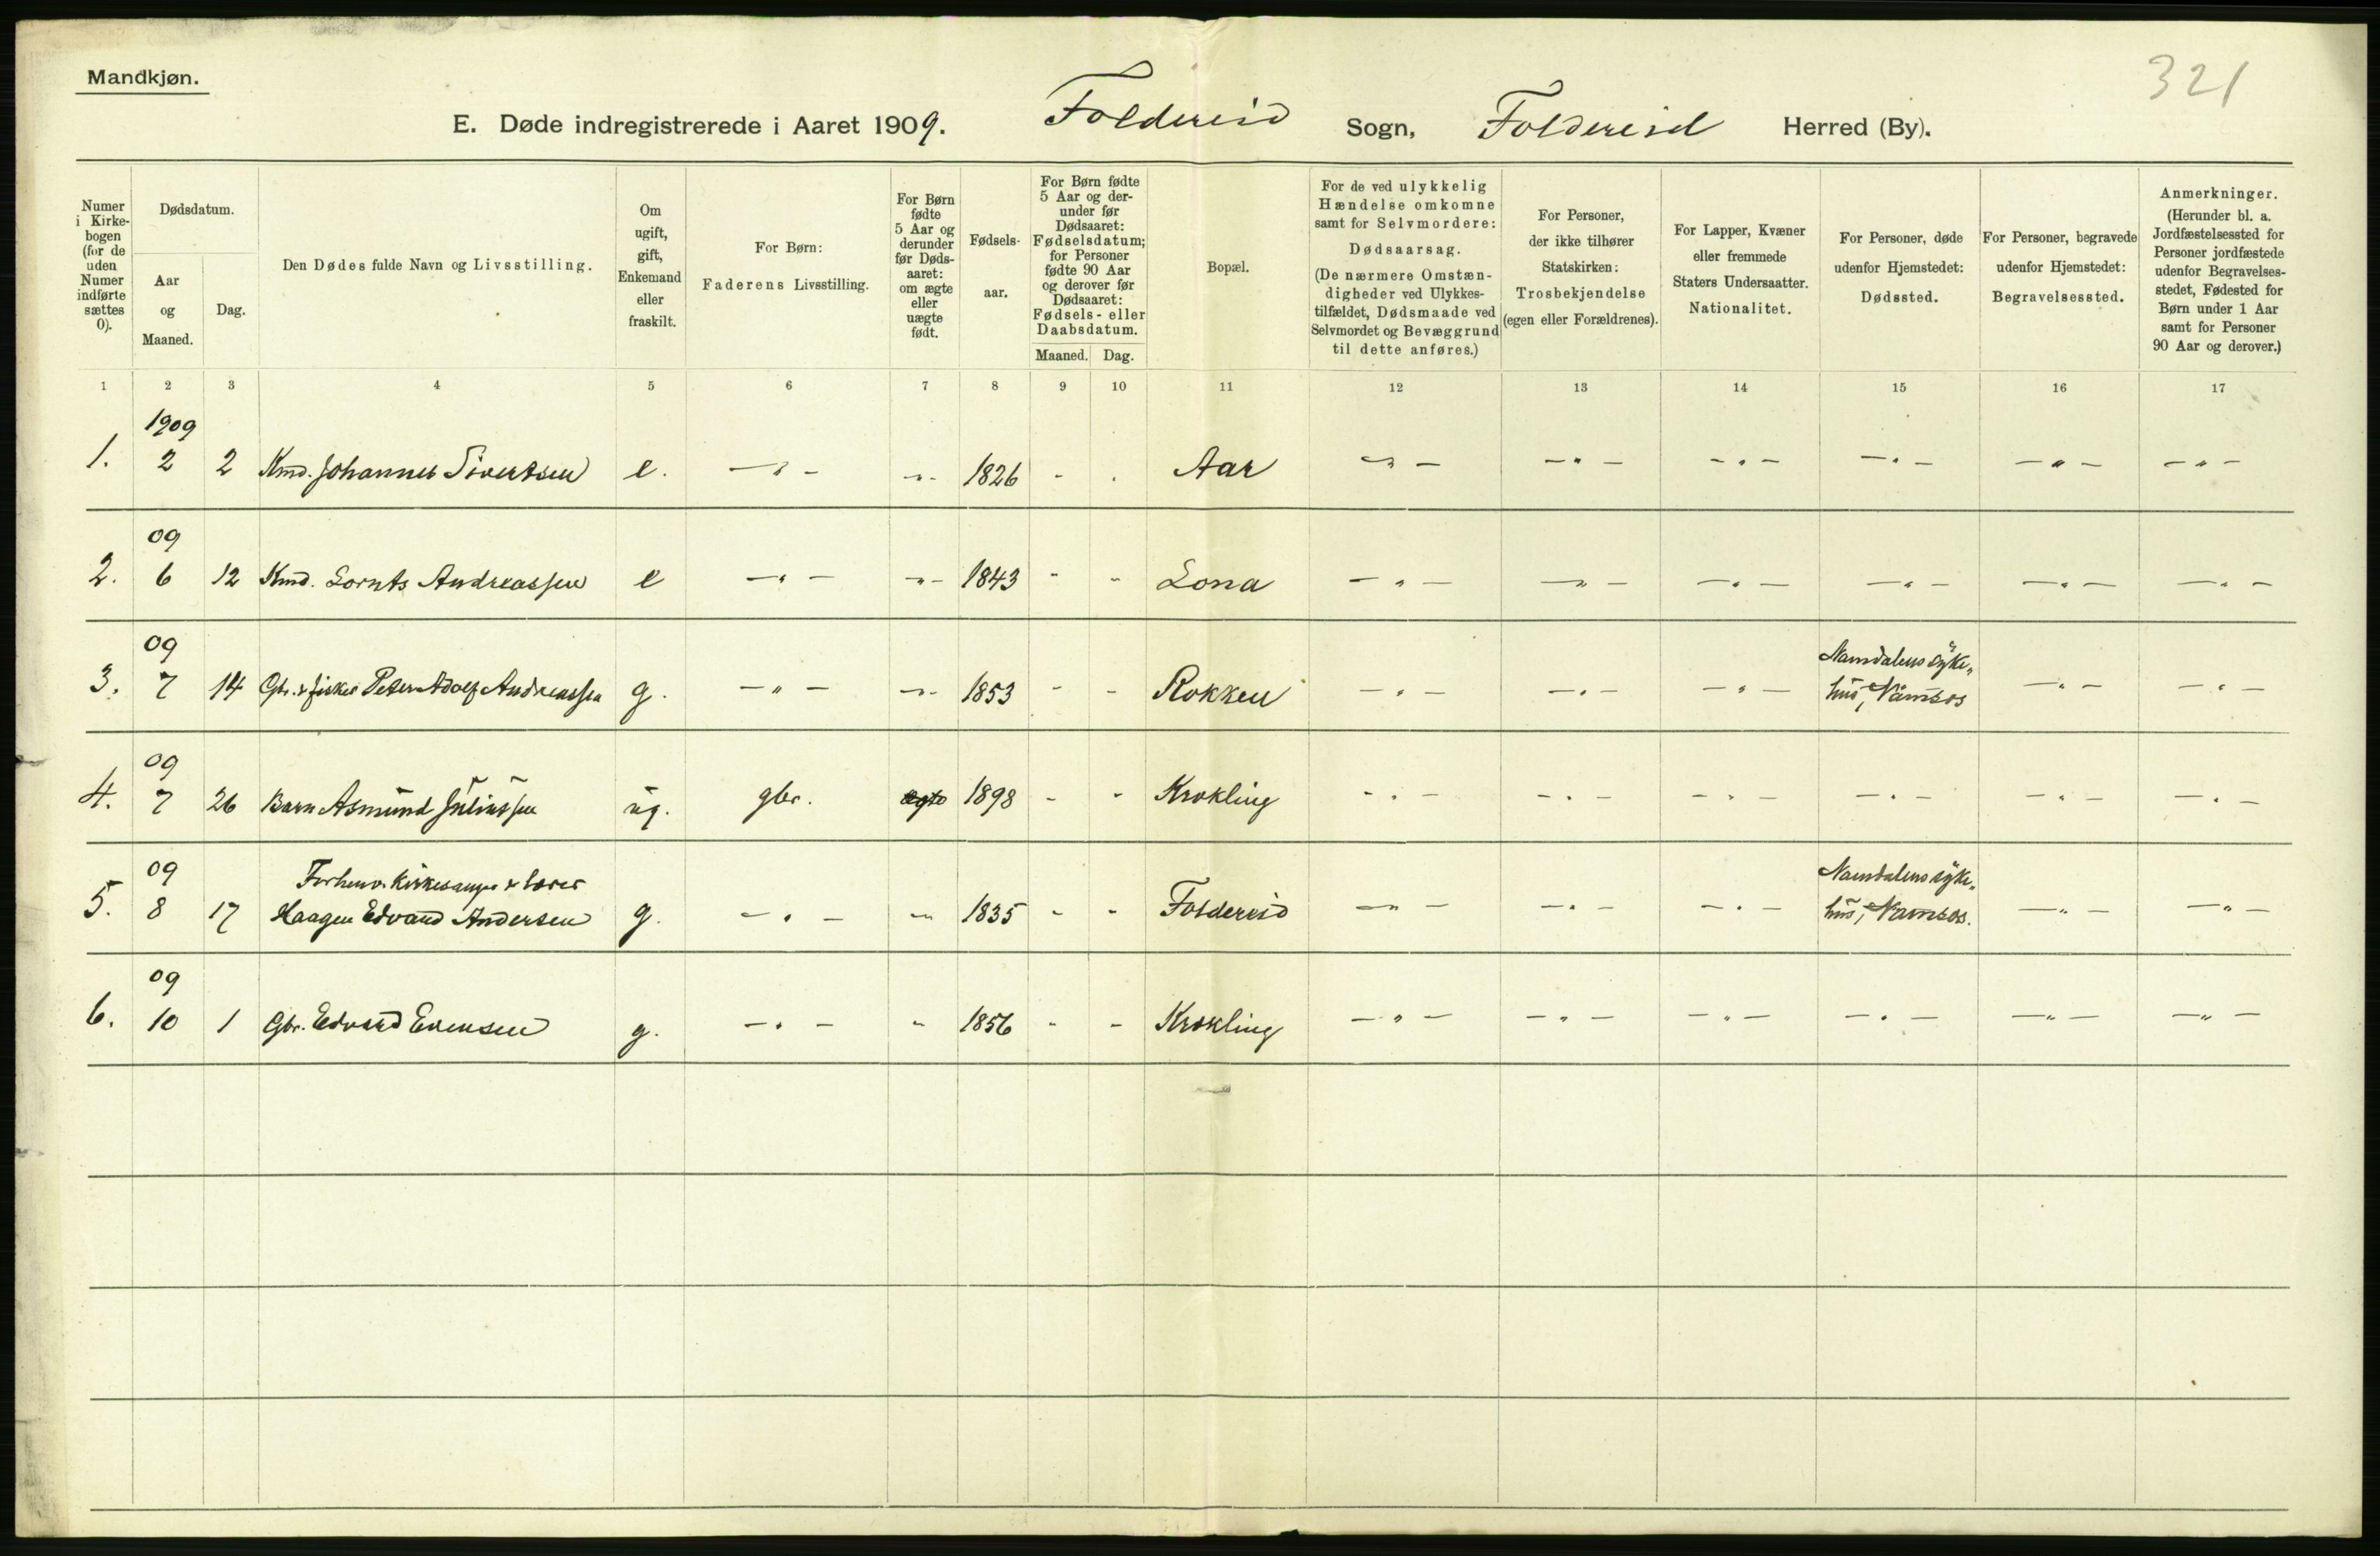 Mandkjøn.
321
E. Døde indregistrerede i Aaret 1909. Foldereid Sogn, Foldereid Herred (By).
Numer i Kirkebogen (for de uden Numer indførte sættes 0).
Dødsdatum.
Aar og Maaned.
Dag.
Den Dødes fulde Navn og Livsstilling.
Om ugift, gift, Enkemand eller fraskilt.
For Børn: Faderens Livsstilling.
For Børn fødte 5 Aar og derunder før Dødsaaret: om ægte eller uægte født.
Fødselsaar.
For Børn fødte 5 Aar og derunder før Dødsaaret: Fødselsdatum; for Personer fødte 90 Aar og derover før Dødsaaret: Fødsels- eller Daabsdatum.
Maaned. Dag.
Bopæl.
For de ved ulykkelig Hændelse omkomne samt for Selvmordere: Dødsaarsag. (De nærmere Omstændigheder ved Ulykkestilfældet, Dødsmaade ved Selvmordet og Bevæggrund til dette anføres.)
For Personer, der ikke tilhører Statskirken: Trosbekjendelse (egen eller Forældrenes).
For Lapper, Kvæner eller fremmede Staters Undersaatter. Nationalitet.
For Personer, døde udenfor Hjemstedet: Dødssted.
For Personer, begravede udenfor Hjemstedet: Begravelsessted.
Anmerkninger. (Herunder bl. a. Jordfæstelsessted for Personer jordfæstede udenfor Begravelsesstedet, Fødested for Børn under 1 Aar samt for Personer 90 Aar og derover.)
1 2 3 4 5 6 7 8 9 10 11 12 13 14 15 16 17
1909
1. 2 2 Kmd. Johannes Sivertsen e. - " - - " - 1826 - - Aar - " - - " - - " - - " - - " - - " -
09
2. 6 12 Kmd. Lornts Andreassen e - " - - " - 1843 - - Lona - " - - " - - " - - " - - " - - " -
09
3. 7 14 Gbr. & fisker Peter Adolf Andreassen g. - " - - " - 1853 - - Rokken - " - - " - - " - Namdalens syke-hus, Namsos - " - - " -
09
4. 7 26 Barn Asmund Juliussen ug. gbr. ægte 1898 - - Krokling - " - - " - - " - - " - - " - - " -
09 Forhenv. Kirkesanger & lærer
5. 8 17 Haagen Edvard Andersen g. - " - - " - 1835 - - Foldereid - " - - " - - " - Namdalens syke-hus, Namsos. - " - - " -
09
6. 10 1 Gbr. Edvard Evensen g. - " - " 1856 - - Krokling - " - - " - - " - - " - - " - - " -